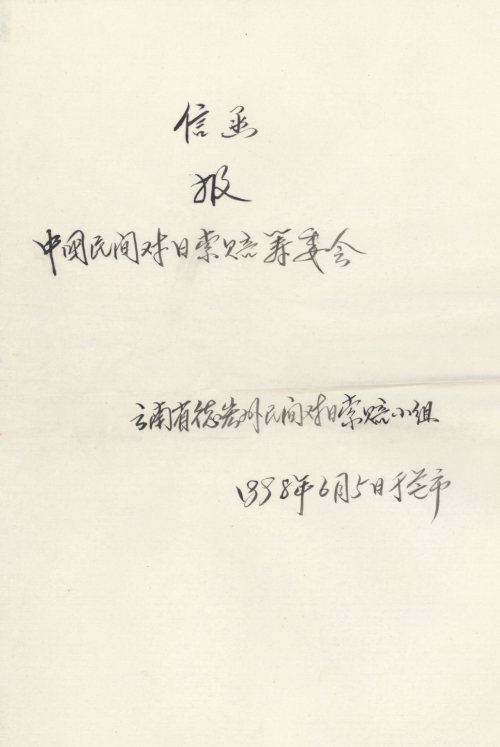 信函
报
中国民间对日索赔筹委会
云南省德宏州民间对日索赔小组
1998年6月5日于芒市